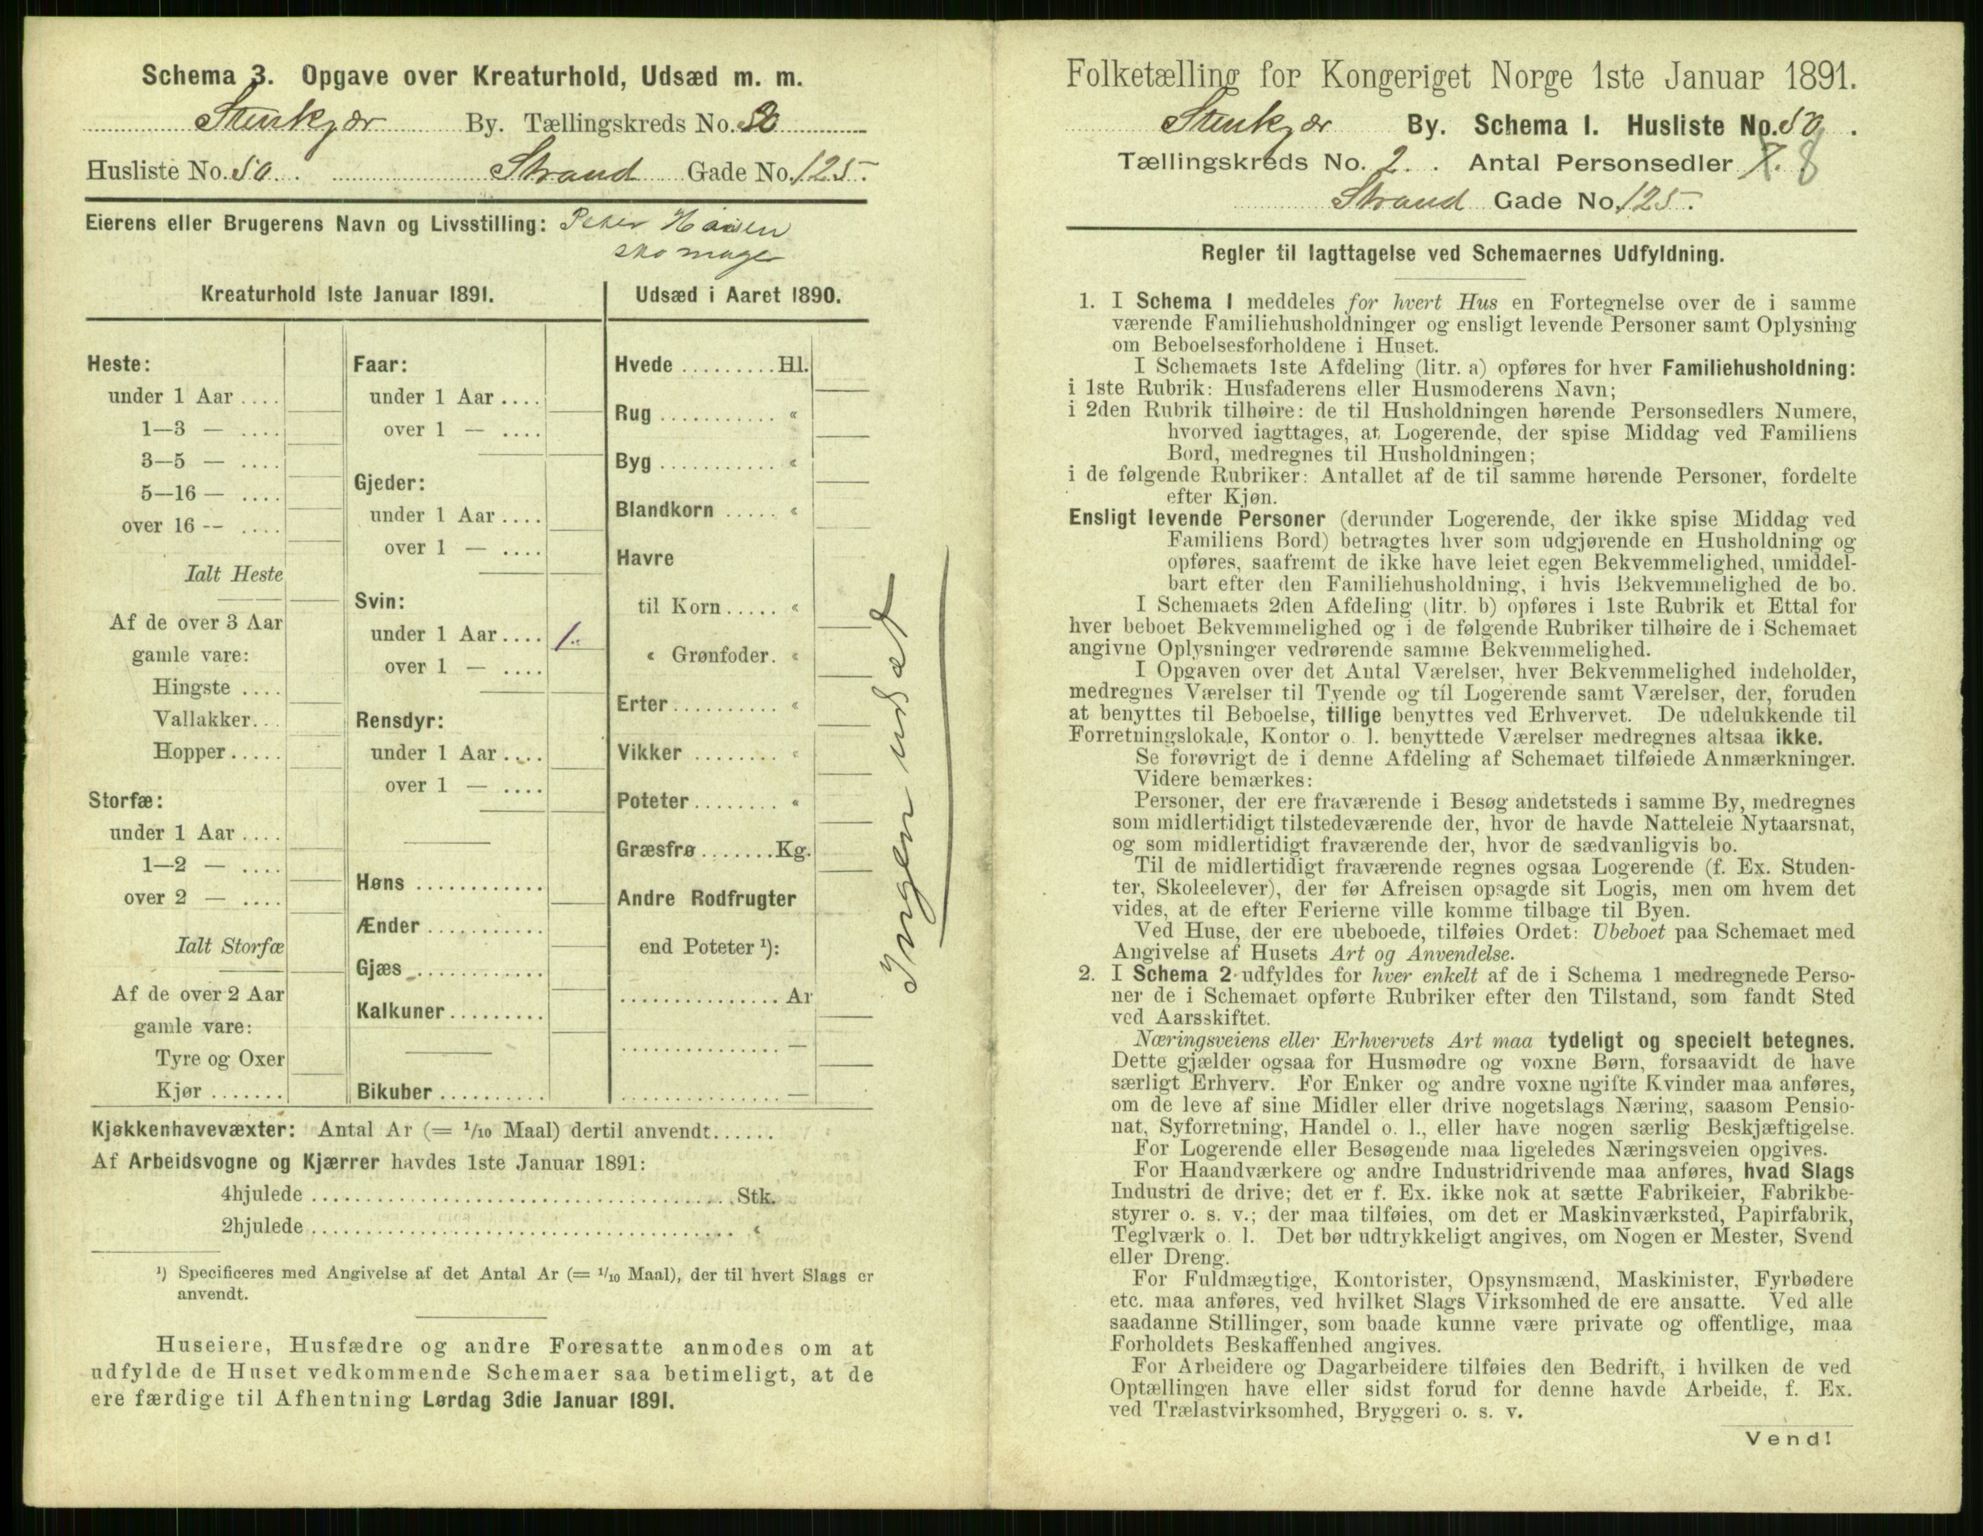 Schema 3. Opgave over Kreaturhold, Udsæd m. m.
Stenkjær By. Tællingskreds No. 2
Husliste No. 50. Strand Gade No. 125.
Eierens eller Brugerens Navn og Livsstilling: Peter Hansen
skomager
Kreaturhold 1ste Januar 1891.
Heste:
under 1 Aar ....
1—3 — ....
3—5 — ....
5—16 — ....
over 16 — ....
Ialt Heste
Af de over 3 Aar
gamle vare:
Hingste ....
Vallakker. ..
Hopper .....
Storfæ:
under 1 Aar ....
1—2 — ....
over 2 — ....
Ialt Storfæ
Af de over 2 Aar
gamle vare:
Tyre og Oxer
Kjør .......
Faar:
under 1 Aar ....
over 1 — ....
Gjeder:
under 1 Aar ....
over 1 — ....
Svin:
under 1 Aar .... 1.
over 1 — ....
Rensdyr:
under 1 Aar ....
over 1 — ....
Høns ............
Ænder ...........
Gjæs ............
Kalkuner .........
Bikuber ..........
Udsæd i Aaret 1890.
Hvede ......... Hl.
Rug ........... «
Byg ........... «
Blandkorn ..... «
Havre
til Korn ..... «
« Grønfoder. «
Erter .......... «
Vikker ........ «
Poteter ........ «
Græsfrø ....... Kg.
Andre Rodfrugter
end Poteter ¹):
............... Ar
............... —
............... —
Ingen udsæd
Kjøkkenhavevæxter: Antal Ar (= 1/10 Maal) dertil anvendt......
Af Arbeidsvogne og Kjærrer havdes 1ste Januar 1891:
4hjulede ........................................ Stk.
2hjulede ........................................ «
¹) Specificeres med Angivelse af det Antal Ar (= 1/10 Maal), der til hvert Slags er
anvendt.
Huseiere, Husfædre og andre Foresatte anmodes om at
udfylde de Huset vedkommende Schemaer saa betimeligt, at de
ere færdige til Afhentning Lørdag 3die Januar 1891.
Folketælling for Kongeriget Norge 1ste Januar 1891.
Stenkjær By. Schema 1. Husliste No. 50.
Tællingskreds No. 2. Antal Personsedler 7. 8
Strand Gade No. 125.
Regler til Iagttagelse ved Schemaernes Udfyldning.
1. I Schema 1 meddeles for hvert Hus en Fortegnelse over de i samme
værende Familiehusholdninger og ensligt levende Personer samt Oplysning
om Beboelsesforholdene i Huset.
I Schemaets 1ste Afdeling (litr. a) opføres for hver Familiehusholdning:
i 1ste Rubrik: Husfaderens eller Husmoderens Navn;
i 2den Rubrik tilhøire: de til Husholdningen hørende Personsedlers Numere,
hvorved iagttages, at Logerende, der spise Middag ved Familiens
Bord, medregnes til Husholdningen;
i de følgende Rubriker: Antallet af de til samme hørende Personer, fordelte
efter Kjøn.
Ensligt levende Personer (derunder Logerende, der ikke spise Middag ved
Familiens Bord) betragtes hver som udgjørende en Husholdning og
opføres, saafremt de ikke have leiet egen Bekvemmelighed, umiddel-
bart efter den Familiehusholdning, i hvis Bekvemmelighed de bo.
I Schemaets 2den Afdeling (litr. b) opføres i 1ste Rubrik et Ettal for
hver beboet Bekvemmelighed og i de følgende Rubriker tilhøire de i Schemaet
angivne Oplysninger vedrørende samme Bekvemmelighed.
I Opgaven over det Antal Værelser, hver Bekvemmelighed indeholder,
medregnes Værelser til Tyende og til Logerende samt Værelser, der, foruden
at benyttes til Beboelse, tillige benyttes ved Erhvervet. De udelukkende til
Forretningslokale, Kontor o. l. benyttede Værelser medregnes altsaa ikke.
Se forøvrigt de i denne Afdeling af Schemaet tilføiede Anmærkninger.
Videre bemærkes:
Personer, der ere fraværende i Besøg andetsteds i samme By, medregnes
som midlertidigt tilstedeværende der, hvor de havde Natteleie Nytaarsnat,
og som midlertidigt fraværende der, hvor de sædvanligvis bo.
Til de midlertidigt fraværende regnes ogsaa Logerende (f. Ex. Studen-
ter, Skoleelever), der før Afreisen opsagde sit Logis, men om hvem det
vides, at de efter Ferierne ville komme tilbage til Byen.
Ved Huse, der ere ubeboede, tilføies Ordet: Ubeboet paa Schemaet med
Angivelse af Husets Art og Anvendelse.
2. I Schema 2 udfyldes for hver enkelt af de i Schema 1 medregnede Perso-
ner de i Schemaet opførte Rubriker efter den Tilstand, som fandt Sted
ved Aarsskiftet.
Næringsveiens eller Erhvervets Art maa tydeligt og specielt betegnes.
Dette gjælder ogsaa for Husmødre og voxne Børn, forsaavidt de have
særligt Erhverv. For Enker og andre voxne ugifte Kvinder maa anføres,
om de leve af sine Midler eller drive nogetslags Næring, saasom Pensio-
nat, Syforretning, Handel o. l., eller have nogen særlig Beskjæftigelse.
For Logerende eller Besøgende maa ligeledes Næringsveien opgives.
For Haandværkere og andre Industridrivende maa anføres, hvad Slags
Industri de drive; det er f. Ex. ikke nok at sætte Fabrikeier, Fabrikbe-
styrer o. s. v.; der maa tilføies, om det er Maskinværksted, Papirfabrik,
Teglværk o. l. Det bør udtrykkeligt angives, om Nogen er Mester, Svend
eller Dreng.
For Fuldmægtige, Kontorister, Opsynsmænd, Maskinister, Fyrbødere
etc. maa anføres, ved hvilket Slags Virksomhed de ere ansatte. Ved alle
saadanne Stillinger, som baade kunne være private og offentlige, maa
Forholdets Beskaffenhed angives.
For Arbeidere og Dagarbeidere tilføies den Bedrift, i hvilken de ved
Optællingen have eller sidst forud for denne havde Arbeide, f. Ex.
ved Trælastvirksomhed, Bryggeri o. s. v.
Vend!